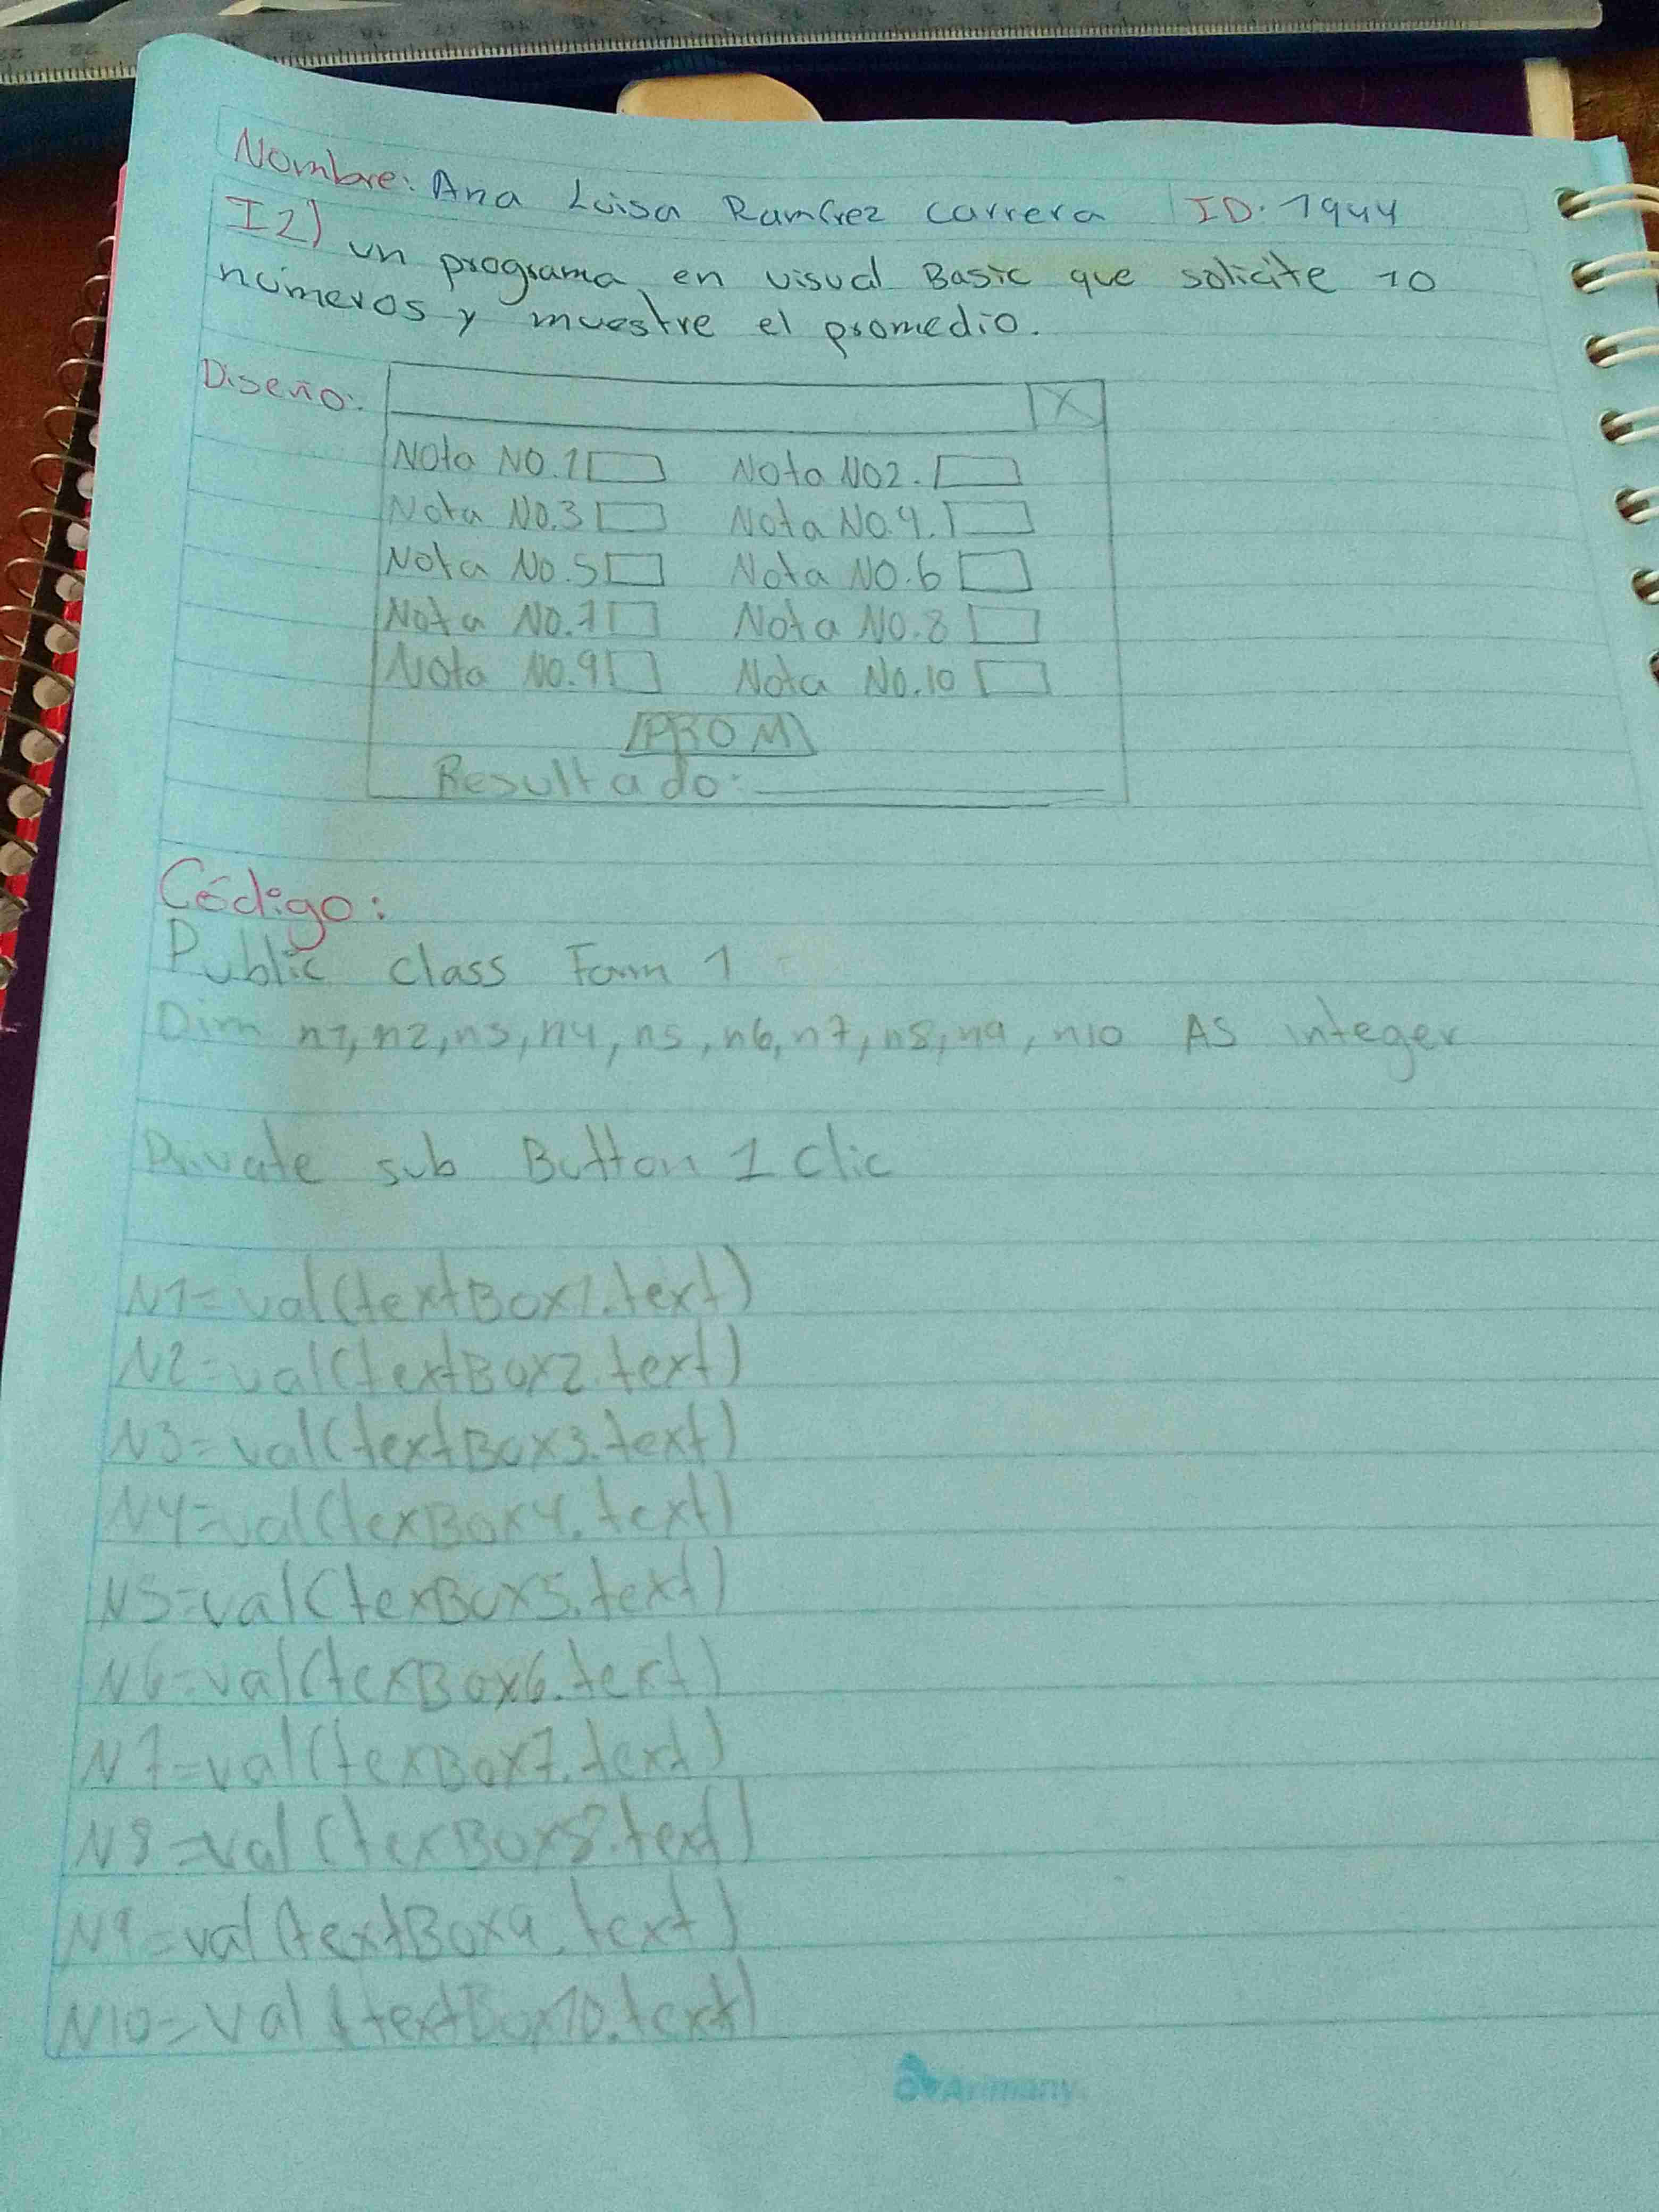 Nombre: Ana Luisa Ramírez Carrera ID. 1944
I2) un programa en visual Basic que solicite 10
números y muestre el promedio.
Diseño:
X
Nota NO.1 Nota NO2.
Nota NO.3 Nota NO.4.
Nota NO.5 Nota NO.6
Nota NO.7 Nota NO.8
Nota NO.9 Nota NO.10
PROM
Resultado:
Código:
Public class Form 1
Dim n1, n2, n3, n4, n5, n6, n7, n8, n9, n10 AS integer
Private sub Button 1 clic
N1=val(textBox1.text)
N2=val(textBox2.text)
N3=val(textBox3.text)
N4=val(texBox4.text)
N5=val(texBox5.text)
N6=val(texBox6.text)
N7=val(texBox7.text)
N8=val(texBox8.text)
N9=val(textBox9.text)
N10=val(textBox10.text)
Arimany